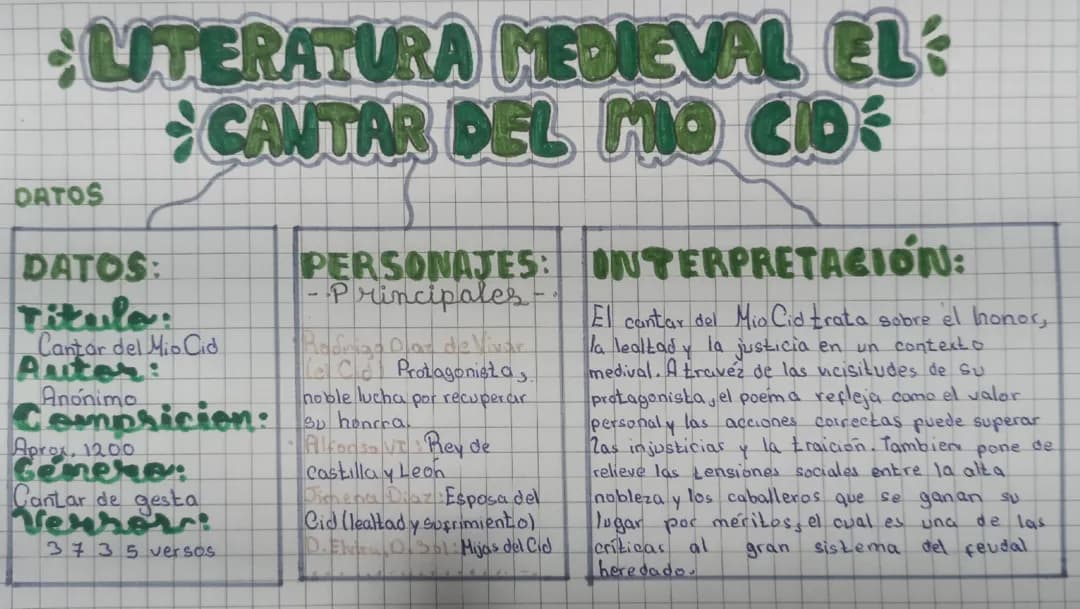 LITERATURA MEDIEVAL EL
CANTAR DEL MIO CID
DATOS
DATOS:
Titulo:
Cantar del Mio Cid
Autor:
Anónimo
Compricion:
Aprox. 1200
Género:
Cantar de gesta
Versos:
3735 versos
PERSONAJES:
-. Principales -.
Rodrigo Diaz de Vivar
(el Cid) Protagonista,
noble lucha por recuperar
su honrra.
Alfonso VI: Rey de
castilla y León
Jimena Diaz: Esposa del
Cid (lealtad y sufrimiento)
D. Elvira, D. Sol: Hijas del Cid
INTERPRETACIÓN:
El cantar del Mio Cid trata sobre el honor,
la lealtad y la justicia en un contexto
medival. A travéz de las vicisitudes de su
protagonista, el poema refleja como el valor
personal y las acciones correctas puede superar
las injusticias y la traición. Tambien pone de
relieve las tensiones sociales entre la alta
nobleza y los caballeros que se ganan su
lugar por méritos, el cual es una de las
críticas al gran sistema del feudal
heredado.